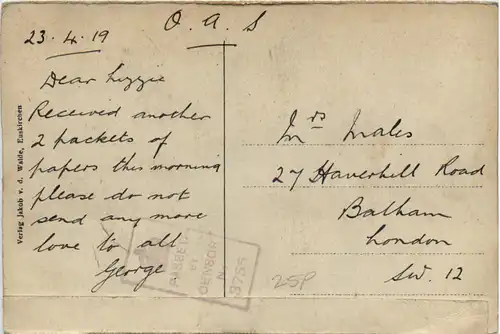 23.4.19
O.A.S
Dear Lizzie
Received another
2 packets of
papers this morning
please do not
send any more
love to all
George
Mrs Males
27 Haverhill Road
Balham
London
SW. 12
25P
Verlag Jakob v. d. Walde, Euskirchen